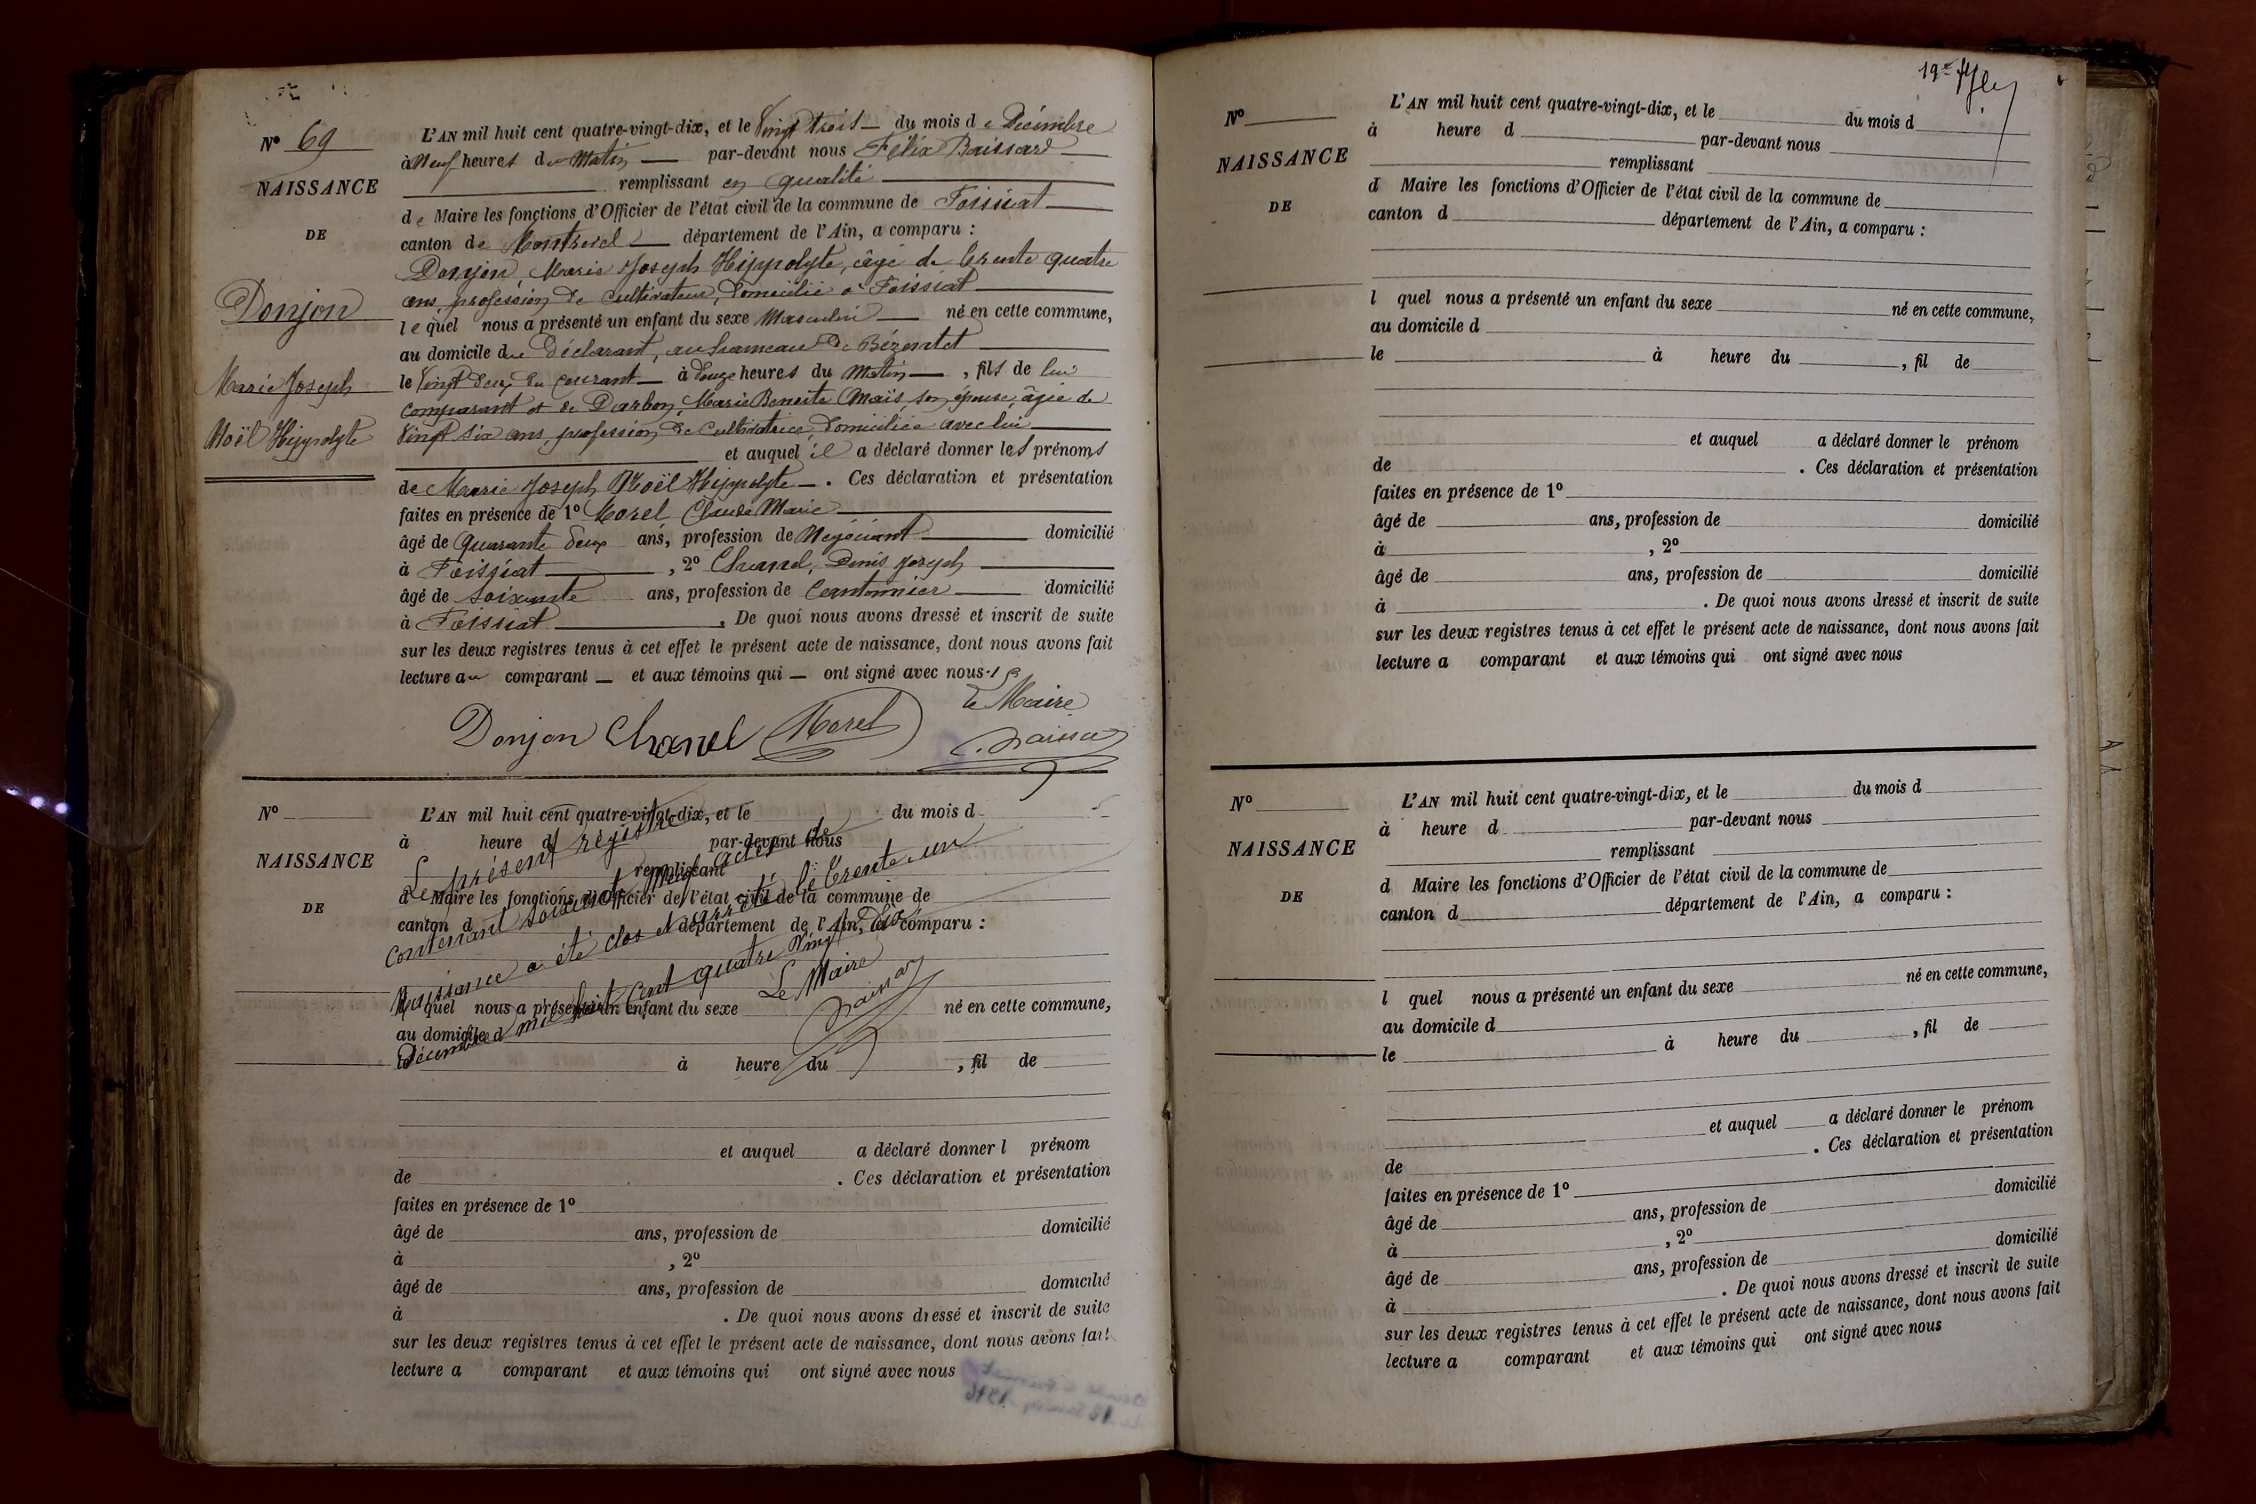 Nº 69
NAISSANCE
DE
Donjon
Marie Joseph
Noël Hippolyte
L'AN mil huit cent quatre-vingt-dix, et le Vingt trois du mois de Décembre
à Neuf heures du Matin par-devant nous Félix Baissard
remplissant en qualité
de Maire les fonctions d'Officier de l'état civil de la commune de Foissiat
canton de Montrevel département de l'Ain, a comparu :
Donjon, Marie Joseph Hippolyte, âgé de trente quatre
ans, profession de cultivateur, domicilié à Foissiat
lequel nous a présenté un enfant du sexe Masculin né en cette commune,
au domicile du Déclarant, au hameau de
le Vingt deux du courant à douze heures du Matin, fils de lui
comparant et de Darbon, Marie Benoite son épouse, âgée de
Vingt six ans, profession de cultivatrice, domiciliée avec lui
et auquel il a déclaré donner les prénoms
de Marie Joseph Noël Hippolyte. Ces déclaration et présentation
faites en présence de 1º Morel Claude Marie
âgé de Quarante deux ans, profession de Négociant domicilié
à Foissiat, 2º Chanel, Denis Joseph
âgé de Soixante ans, profession de Cantonnier domicilié
à Foissiat. De quoi nous avons dressé et inscrit de suite
sur les deux registres tenus à cet effet le présent acte de naissance, dont nous avons fait
lecture au comparant et aux témoins qui ont signé avec nous
Le Maire
Donjon Chanel Morel
Nº
NAISSANCE
DE
L'AN mil huit cent quatre-vingt-dix, et le du mois d
à heure d par-devant nous
remplissant
d Maire les fonctions d'Officier de l'état civil de la commune de
canton d département de l'Ain, a comparu :
l quel nous a présenté un enfant du sexe né en cette commune,
au domicile d
le à heure du , fil de
et auquel a déclaré donner l prénom
de . Ces déclaration et présentation
faites en présence de 1º
âgé de ans, profession de domicilié
à , 2º
âgé de ans, profession de domicilié
à . De quoi nous avons dressé et inscrit de suite
sur les deux registres tenus à cet effet le présent acte de naissance, dont nous avons fait
lecture a comparant et aux témoins qui ont signé avec nous
Le présent registre
contenant soixante neuf actes de
Naissance a été clos et arrêté le trente un
Décembre mil huit cent quatre Vingt Dix
Le Maire
Nº
NAISSANCE
DE
L'AN mil huit cent quatre-vingt-dix, et le du mois d
à heure d par-devant nous
remplissant
d Maire les fonctions d'Officier de l'état civil de la commune de
canton d département de l'Ain, a comparu :
l quel nous a présenté un enfant du sexe né en cette commune,
au domicile d
le à heure du , fil de
et auquel a déclaré donner le prénom
de . Ces déclaration et présentation
faites en présence de 1º
âgé de ans, profession de domicilié
à , 2º
âgé de ans, profession de domicilié
à . De quoi nous avons dressé et inscrit de suite
sur les deux registres tenus à cet effet le présent acte de naissance, dont nous avons fait
lecture a comparant et aux témoins qui ont signé avec nous
Nº
NAISSANCE
DE
L'AN mil huit cent quatre-vingt-dix, et le du mois d
à heure d par-devant nous
remplissant
d Maire les fonctions d'Officier de l'état civil de la commune de
canton d département de l'Ain, a comparu :
l quel nous a présenté un enfant du sexe né en cette commune,
au domicile d
le à heure du , fil de
et auquel a déclaré donner le prénom
de . Ces déclaration et présentation
faites en présence de 1º
âgé de ans, profession de domicilié
à , 2º
âgé de ans, profession de domicilié
à . De quoi nous avons dressé et inscrit de suite
sur les deux registres tenus à cet effet le présent acte de naissance, dont nous avons fait
lecture a comparant et aux témoins qui ont signé avec nous